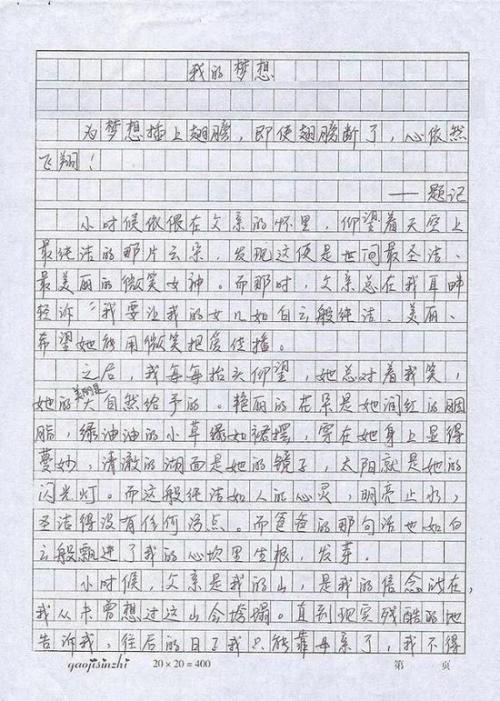 我的梦想
为梦想插上翅膀，即使翅膀断了，心依然
飞翔！
——题记
小时候依偎在父亲的怀里，仰望着天空上
最纯洁的那片云朵，发现这便是世间最圣洁、
最美丽的微笑女神。而那时，父亲总在我耳畔
轻诉“我要让我的女儿如白云般纯洁、美丽、
希望她能用微笑把爱传播。
之后，我每每抬头仰望，她总对着我笑，
她的美的是大自然给予的。艳丽的花朵是她润红的胭
脂，绿油油的小草绿如裙摆，穿在她身上显得
曼妙，清澈的湖面是她的镜子，太阳就是她的
闪光灯。而这般纯洁如人的心灵，明亮止水，
圣洁得没有任何污点。而爸爸的那句话也如白
云般飘进了我的心坎里生根，发芽。
小时候，父亲是我的山，是我的信念所在，
我从未曾想过这山会垮蹋。直到现实残酷的地
告诉我，往后的日子我只能靠母亲了，我不得
gaojisinzhi 20×20=400 第 页